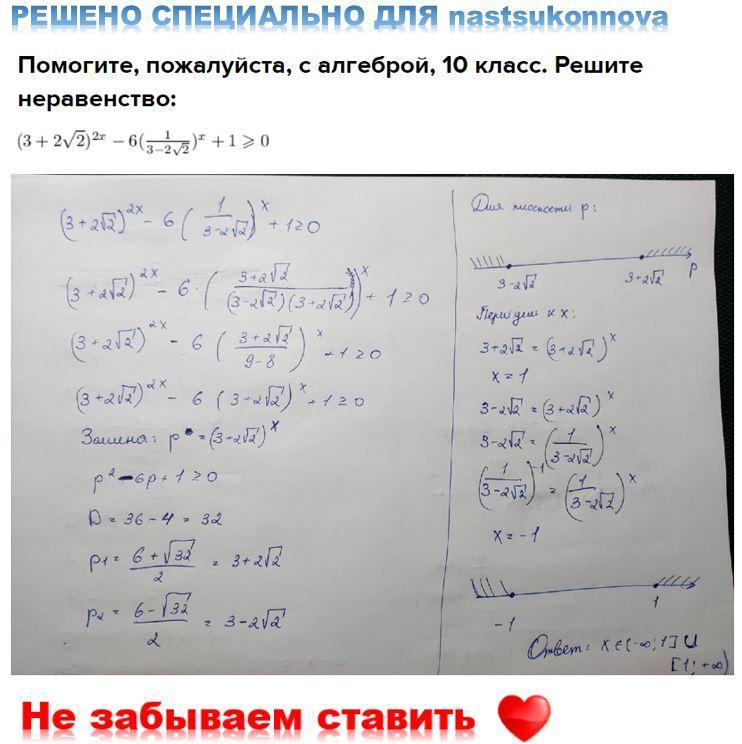 РЕШЕНО СПЕЦИАЛЬНО ДЛЯ nastsukonnova
Помогите, пожалуйста, с алгеброй, 10 класс. Решите
неравенство:
(3 + 2√2)^{2x} − 6(1/(3−2√2))^x + 1 ⩾ 0
(3+2√2)^{2x} − 6 (1/(3−2√2))^x + 1 ≥ 0
(3+2√2)^{2x} − 6 · ((3+2√2)/((3−2√2)(3+2√2)))^x + 1 ≥ 0
(3+2√2)^{2x} − 6 ((3+2√2)/(9−8))^x + 1 ≥ 0
(3+2√2)^{2x} − 6 (3+2√2)^x + 1 ≥ 0
Замена: p = (3+2√2)^x
p² − 6p + 1 ≥ 0
D = 36 − 4 = 32
p₁ = (6+√32)/2 = 3+2√2
p₂ = (6−√32)/2 = 3−2√2
Для плоскости p:
3−2√2 3+2√2 p
Перейдем к x:
3+2√2 = (3+2√2)^x
x = 1
3−2√2 = (3+2√2)^x
3−2√2 = (1/(3−2√2))^x
(1/(3−2√2))^{-1} = (1/(3−2√2))^x
x = −1
−1 1
Ответ: x ∈ (−∞; 1] ∪
[1; +∞)
Не забываем ставить